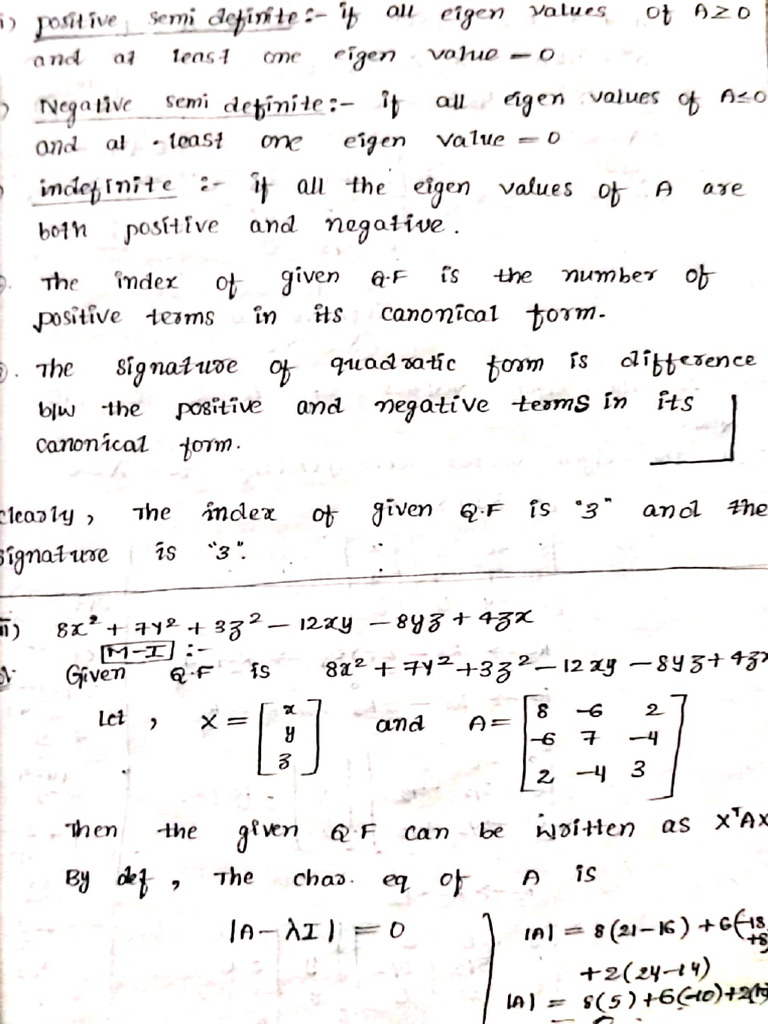 i) positive semi definite :- if all eigen values of A≥0
and at least one eigen value = 0
Negative semi definite :- if all eigen values of A≤0
and at least one eigen value = 0
indefinite :- if all the eigen values of A are
both positive and negative.
The index of given Q.F is the number of
positive terms in its canonical form.
The signature of quadratic form is difference
b/w the positive and negative terms in its
canonical form.
clearly, The index of given Q.F is "3" and the
signature is "3".
ii) 8x² + 7y² + 3z² - 12xy - 8yz + 4zx
M-I :-
Given Q.F is 8x² + 7y² + 3z² - 12xy - 8yz + 4zx
Let, X = [x y z] and A = [8 -6 2
-6 7 -4
2 -4 3]
Then the given Q.F can be written as XᵀAX
By def, The char. eq of A is
|A - λI| = 0
|A| = 8(21-16) + 6(-18+8)
+2(24-14)
|A| = 8(5) + 6(-10) + 2(10)